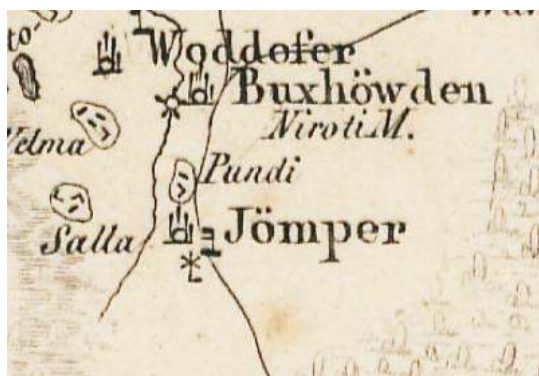 Woddofer
Buxhöwden
Niroti M.
Velma
Pundi
Salla
Jömper